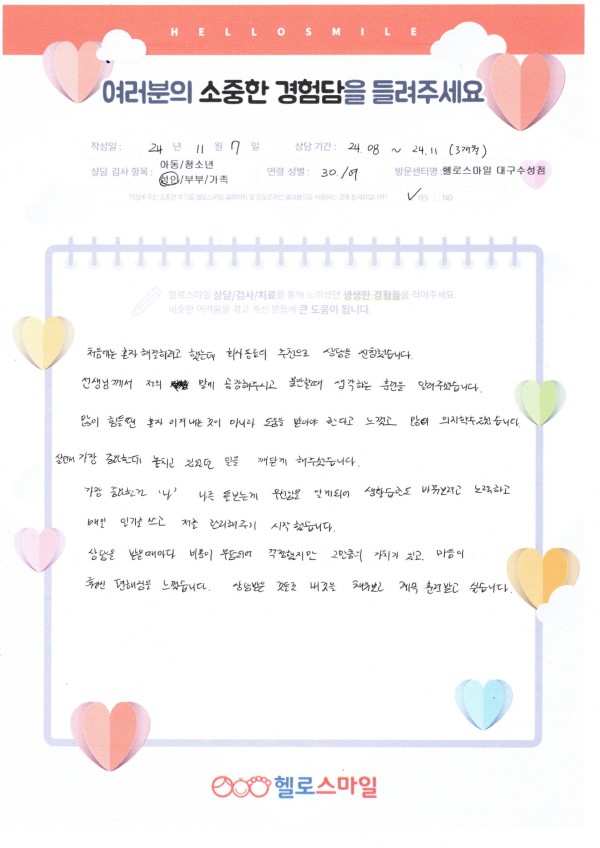 HELLOSMILE
여러분의 소중한 경험담을 들려주세요
작성일 : 24 년 11 월 7 일 상담 기간 : 24.08 ~ 24.11 (3개월)
상담 검사 항목 : 아동/청소년 성인/부부/가족 연령 성별 : 30./여 방문센터명 : 헬로스마일 대구수성점
YES NO
헬로스마일 상담/검사/치료를 통해 느끼셨던 생생한 경험들을 적어주세요.
비슷한 어려움을 겪고 계신 분들께 큰 도움이 됩니다.
처음에는 혼자 해결하려고 했는데 회사동료의 추천으로 상담을 신청했습니다.
선생님께서 저의 맞게 공감해주시고 불안할때 생각하는 훈련을 알려주셨습니다.
많이 힘들땐 혼자 이겨내는것이 아니라 도움을 받아야 한다고 느꼈고 많이 의지할수있었습니다.
살면서 가장 중요한데 놓치고 있었던 일을 깨닫게 해주셨습니다.
가장 중요한건 '나' 나를 돌보는게 우선임을 알게되어 생활습관도 바꿔보려고 노력하고
매일 일기를 쓰고 저를 관리해주기 시작했습니다.
상담을 받을때마다 비용이 부담되어 걱정했지만 그만큼의 가치가 있고 마음이
훨씬 편해짐을 느꼈습니다. 상담받은 것들로 내것을 채워보고 계속 훈련받고 싶습니다.
헬로스마일